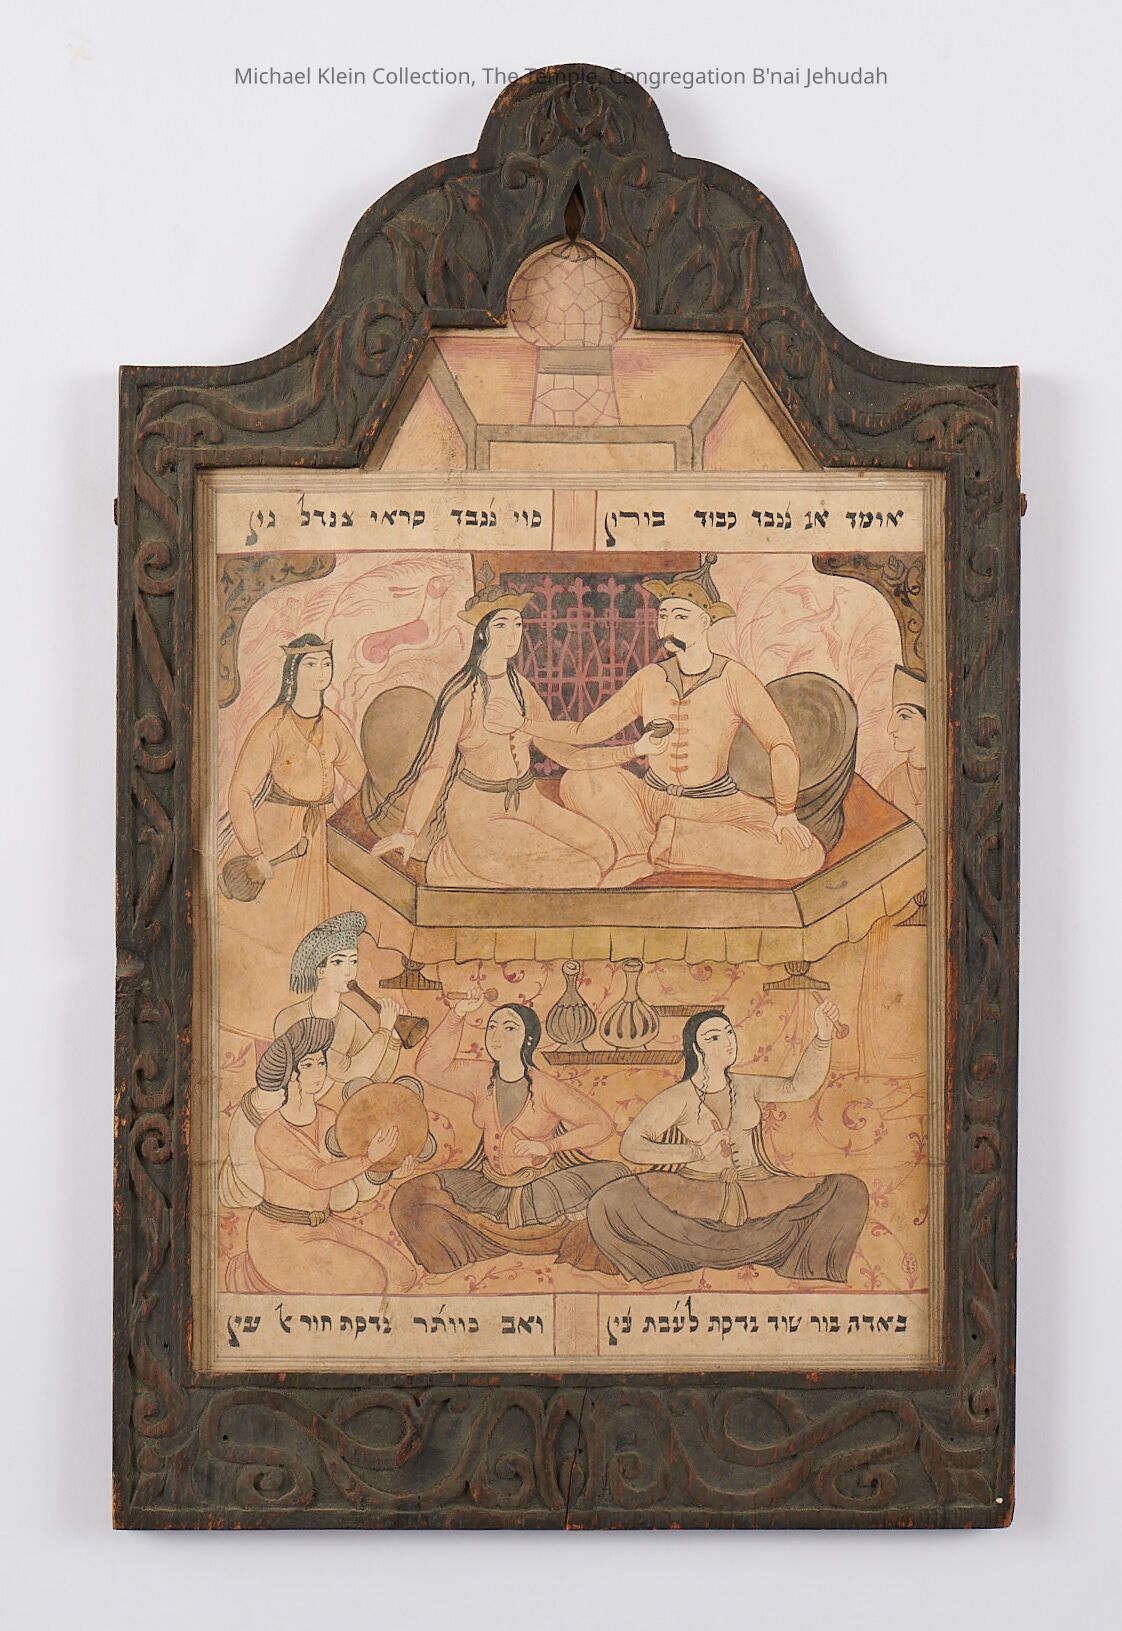 Michael Klein Collection, The Temple, Congregation B'nai Jehudah
אומד אז גנבד כבוד בורון סוי גנבד סראי צנדל גון
באדה כור שוד זדסת לעבת צין ואב כוותר זדסת חור אל עין